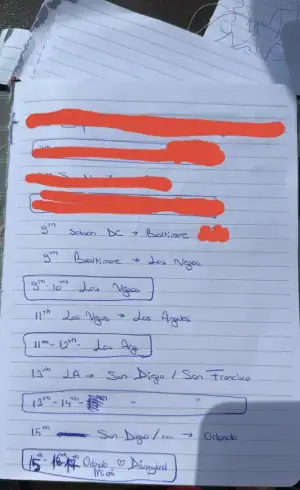 9th DC → Baltimore
9th Baltimore → Las Vegas
9th-10th Las Vegas
11th Las Vegas → Los Angeles
11th-12th- Los Ang
13th LA → San Diego / San Francisco
13th-14th- " "
15th San Diego / → Orlando
15th-16th-17th Orlando ♡ Disneyland
Miami